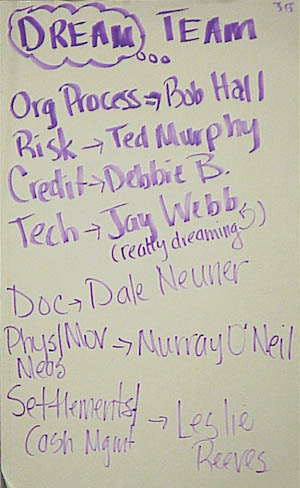 35
DREAM TEAM
Org Process → Bob Hall
Risk → Ted Murphy
Credit → Debbie B.
Tech → Jay Webb
(really dreaming :))
Doc → Dale Neuner
Phys/Mov → Murray O'Neil
Meas
Settlements/
Cash Mgmt → Leslie
Reeves